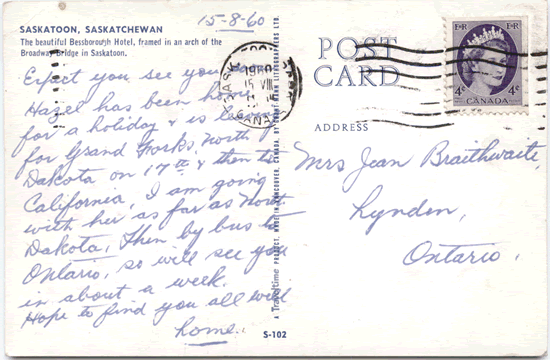 15-8-60
SASKATOON, SASKATCHEWAN
The beautiful Bessborough Hotel, framed in an arch of the
Broadway Bridge in Saskatoon.
Expect you see you
Hazel has been home
for a holiday & is
for Grand Forks, North
Dakota on 17th & then to
California, I am going
with her as far as North
Dakota, Then by bus to
Ontario, so will see you
in about a week.
Hope to find you all well
home.
S-102
A Traveltime PRODUCT. MADE IN VANCOUVER, CANADA, BY
LITHOGRAPHERS LTD.
SASK
1960
15 VIII
CANADA
POST
CARD
ADDRESS
E II R E II R
4c 4c
CANADA
Mrs Jean Braithwaite,
Lynden,
Ontario.